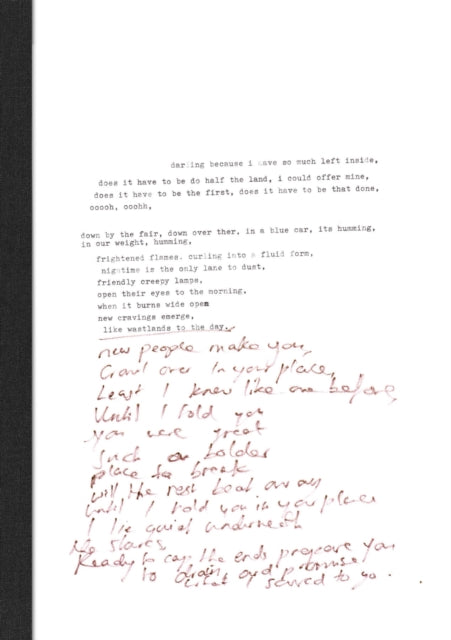 darling because i have so much left inside,
does it have to be do half the land, i could offer mine,
does it have to be the first, does it have to be that done,
ooooh, ooohh,
down by the fair, down over ther, in a blue car, its humming,
in our weight, humming,
frightened flames, curling into a fluid form,
nigntime is the only lane to dust,
friendly creepy lamps,
open their eyes to the morning,
when it burns wide open
new cravings emerge,
like wastlands to the day.
new people make you,
Crawl over in your place,
Least I knew like one before,
Until I told you
you were great
Such a bolder
place to break
will the rest beat away
Until I told you in your place
I lie quiet underneath
the stares
Ready to cap the ends procare you
to drain and promise
I serred to go.